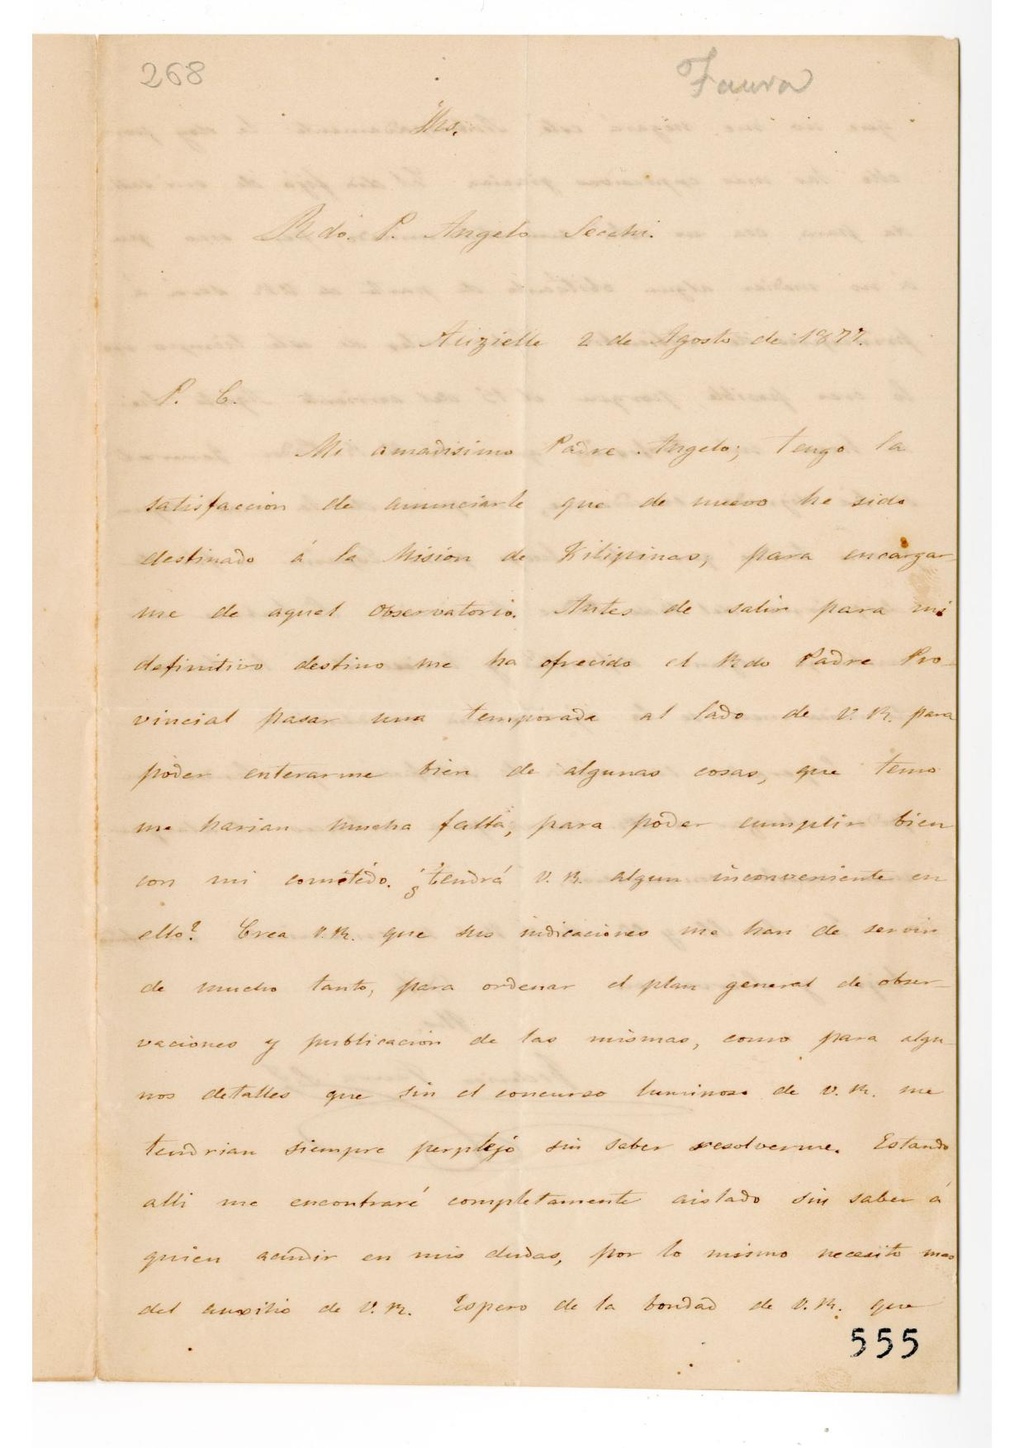 268
Faura
Jhs.
Rdo. P. Angelo Secchi.
Auzielle 2 de Agosto de 1877.
P. C.
Mi amadisimo Padre Angelo; tengo la
satisfaccion de anunciarle que de nuevo he sido
destinado á la Mision de Filipinas, para encargar
me de aquel Observatorio. Antes de salir para mi
definitivo destino me ha ofrecido el Rdo Padre Pro-
vincial pasar una temporada al lado de V. R. para
poder enterarme bien de algunas cosas, que temo
me harian mucha falta, para poder cumplir bien
con mi cometido. ¿tendrá V. R. algun inconveniente en
ello? Crea V. R. que sus indicaciones me han de servir
de mucho tanto, para ordenar el plan general de obser-
vaciones y publicacion de las mismas, como para algu-
nos detalles que sin el concurso luminoso de V. R. me
tendrian siempre perplejo sin saber resolverme. Estando
alli me encontraré completamente aislado sin saber á
quien acudir en mis dudas, por lo mismo necesito mas
del auxilio de V. R. Espero de la bondad de V. R. que
555